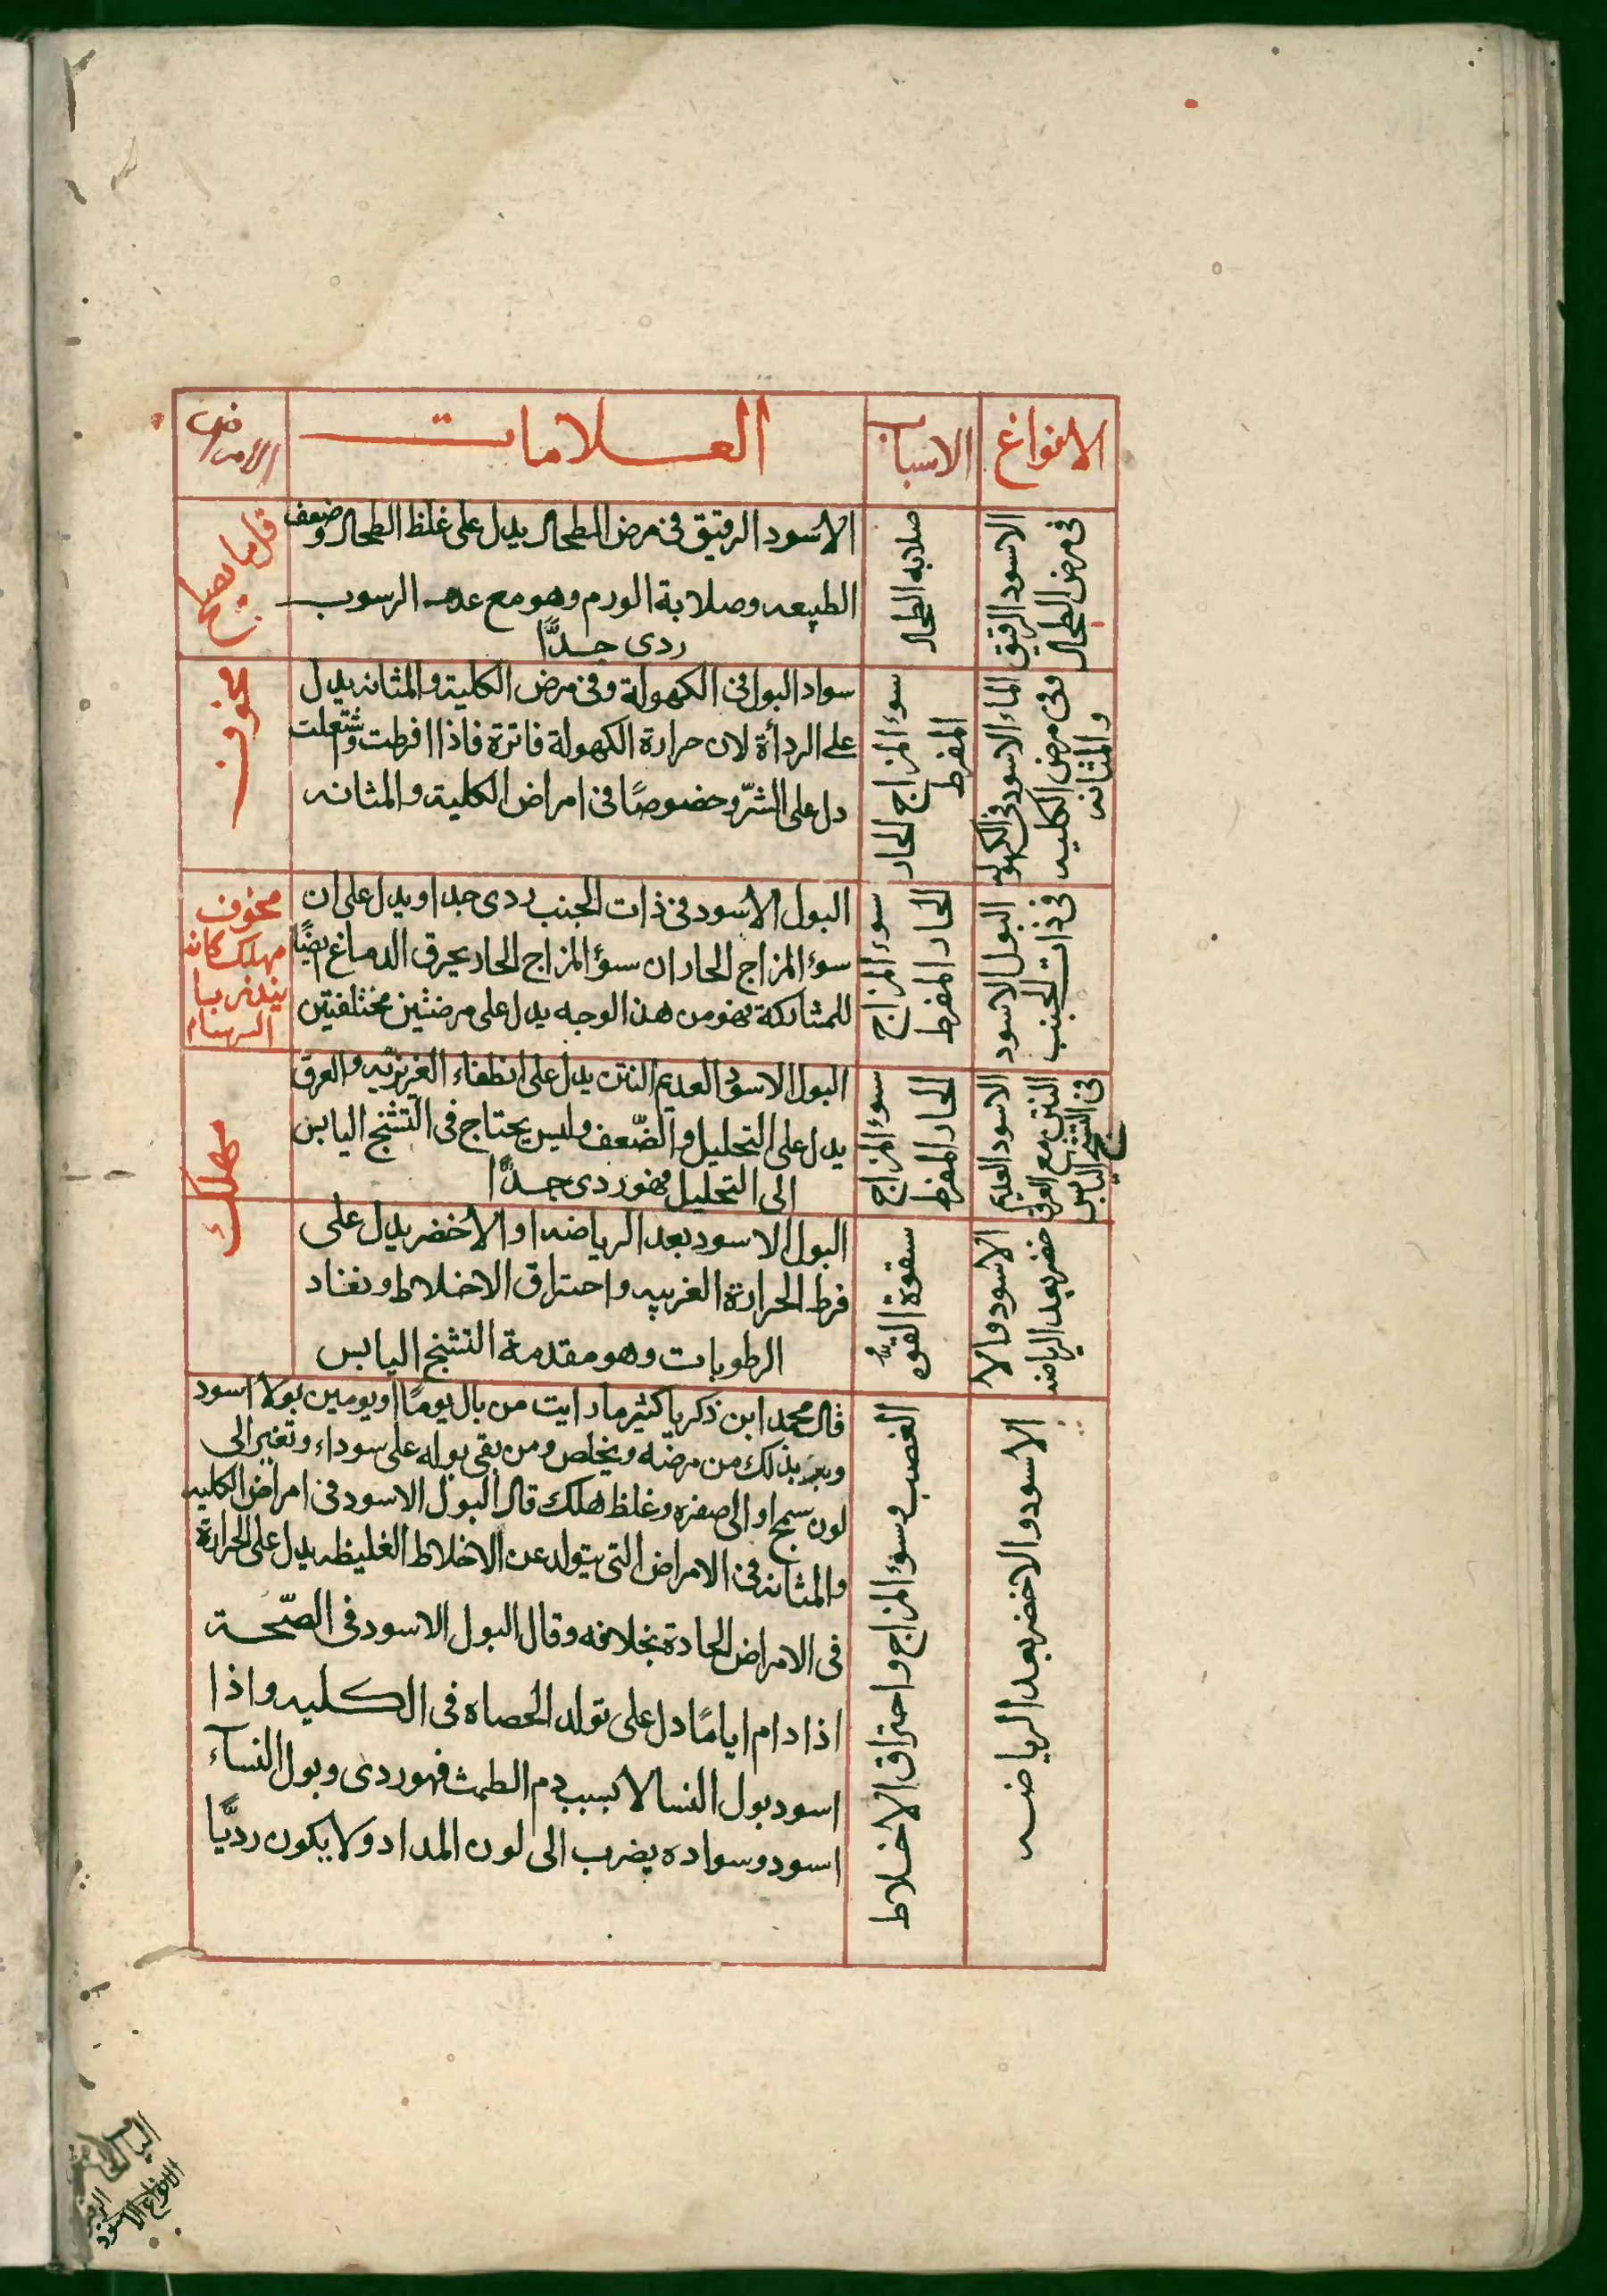 الانواع
الاسباب
العلامات
الامراض
الاسود الرقيق
فى مرض الطحال
صلابه الطحال
الاسود الرقيق فى مرض الطحال يدل على غلظ الطحال وضعف
الطبيعه وصلابة الورم وهو مع عدم الرسوب
ردى جدًّا
قل ما يصلح
الماء الاسود فى الكهوله
وفى مرض الكليه
والمثانه
سوء المزاج الحار
المفرط
سواد البول فى الكهولة وفى مرض الكلية والمثانه يدل
على الرداءة لان حرارة الكهولة فاترة فاذا افرطت وشتعلت
دل على الشرّ وخصوصًا فى امراض الكلية والمثانه
مخوف
البول الاسود
فى ذات الجنب
سوء المزاج
الحار المفرط
البول الاسود فى ذات الجنب ردى جدا ويدل على ان
سوء المزاج الحار ان سوء المزاج الحار يحرق الدماغ ايضًا
للمشاركة فهو من هذا الوجه يدل على مرضين مختلفتين
مخوف
مهلك كانه
ينذر بـا
السرسام
الاسود العديم
النتن مع العرق
فى التشنج اليابس
سوء المزاج
الحار المفرط
البول الاسود العديم النتن يدل على انطفاء الغريزيّه والعرق
يدل على التحليل والضّعف وليس يحتاج فى التشنج اليابس
الى التحليل فهو ردى جدًّا
مهلك
الاسود والا
خضر بعد الرياضه
سقوة القوه
البول الاسود بعد الرياضه او الاخضر يدل على
فرط الحرارة الغريبه واحتراق الاخلاط ونفاد
الرطوبات وهو مقدمة التشنج اليابس
الاسود والاخضر بعد الرياضه
الغضب وسوء المزاج واحتراق الاخلاط
قال محمد ابن زكريا كثير ما رايت من بال يومًا او يومين بولا اسود
وبعر بذلك من مرضه ويخلص ومن بقى بوله على سوداء وتغير الى
لون سمج او الى صفره وغلظ هلك قال البول الاسود فى امراض الكليه
والمثانه فى الامراض التى يتولد عن الاخلاط الغليظه يدل على الحرارة
فى الامراض الحادة بخلافه وقال البول الاسود فى الصّحة
اذا دام ايامًا دل على تولد الحصاه فى الكليه واذا
اسود بول النسا لا بسبب دم الطمث فهو ردى وبول النسآء
اسود وسواده يضرب الى لون المداد ولا يكون رديًّا
الانواع الاسود